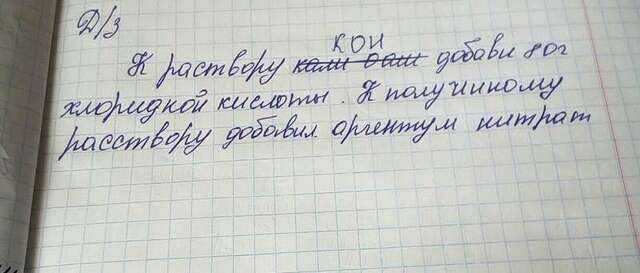 Д/З
КОН
К раствору кали ваш добави 80г
хлоридной кислоты. К получиному
расствору добавил аргентум нитрат